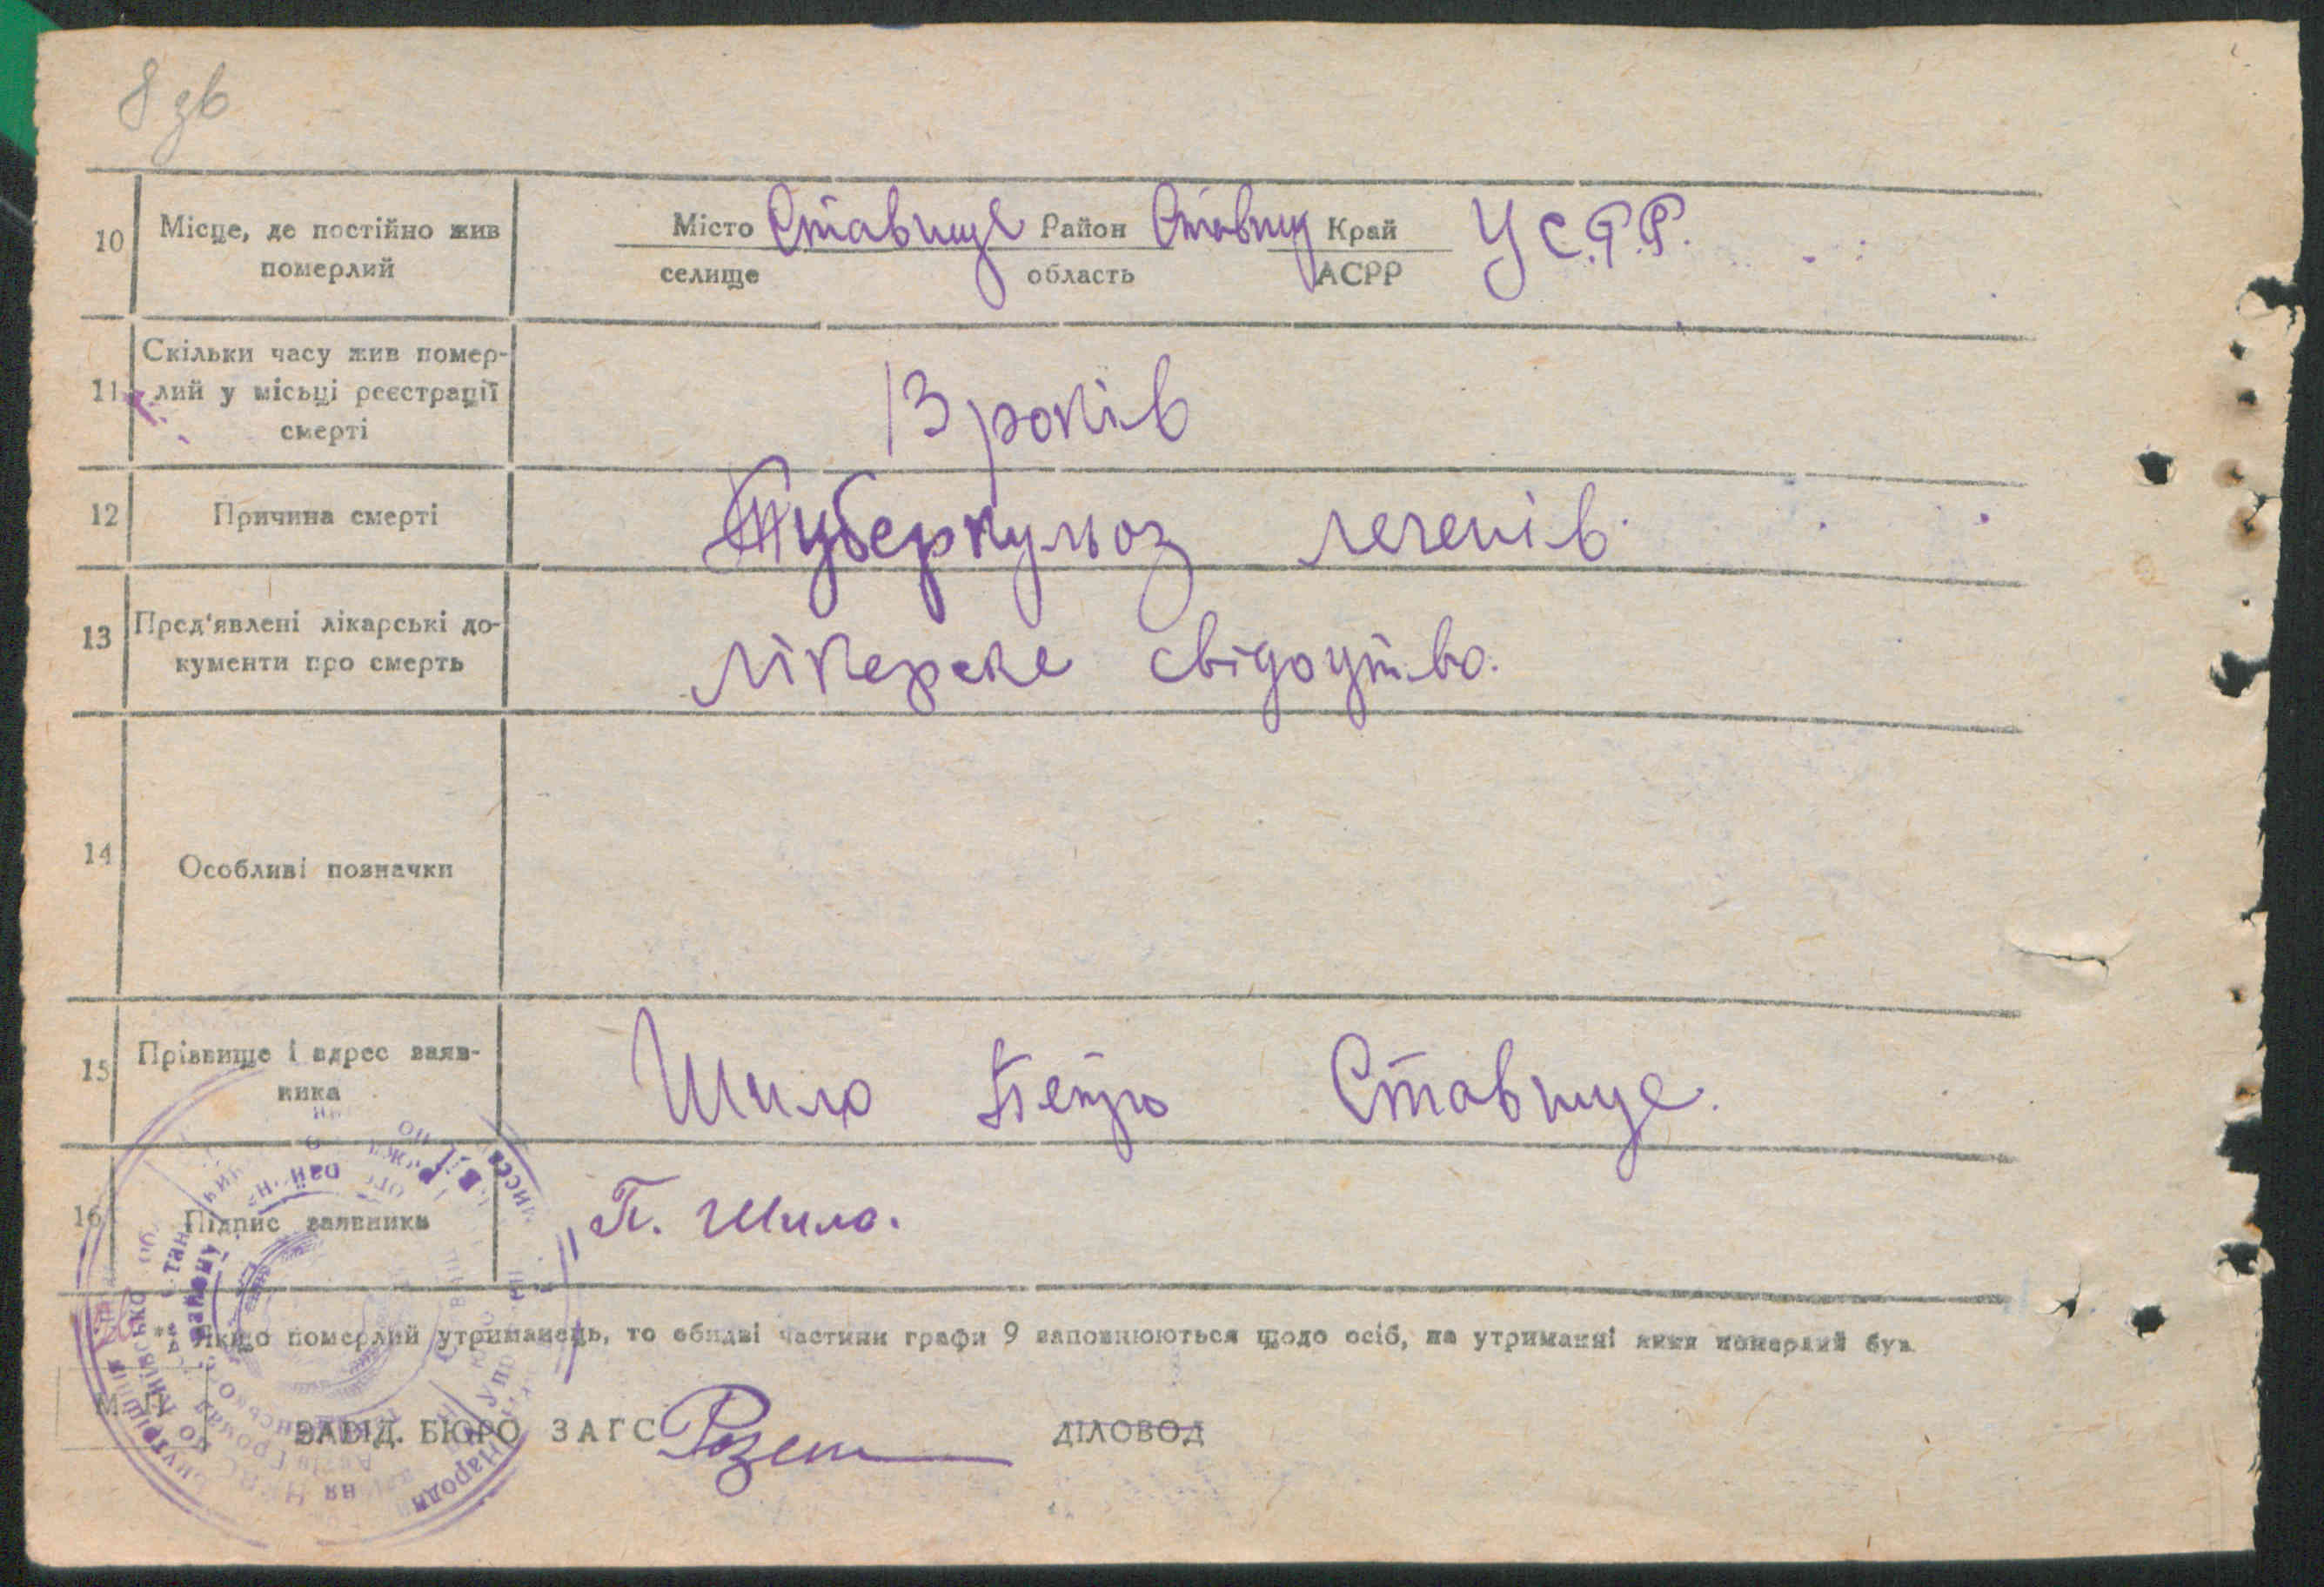 8 зв
10 Місце, де постійно жив померлий Місто Ставище Район Ставищ Край У С.Р.Р.
селище область АСРР
11 Скільки часу жив помер-
лий у місьці реєстрації
смерті
13 років
12 Причина смерті Туберкульоз легенів.
13 Пред'явлені лікарські до-
кументи про смерть
лікерске свідоцтво.
14 Особливі позначки
15 Прізвище і адрес заяв-
ника
Шило Петро Ставище.
16 Підпис заявника П. Шило.
* Якщо померлий утриманець, то обидві частини графи 9 заповнюються щодо осіб, на утриманні яких померлий був.
М. П.
ЗАВІД. БЮРО ЗАГС ДІЛОВОД